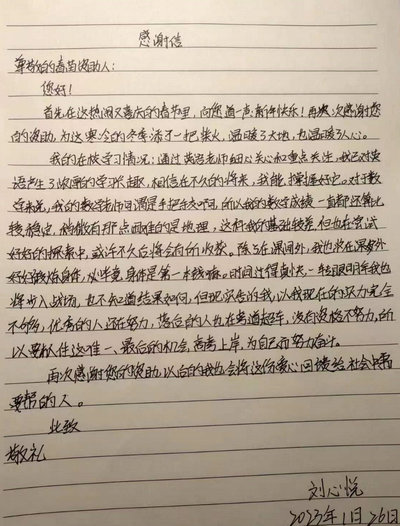 感谢信
尊敬的春苗资助人：
您好！
首先在这热闹又喜庆的春节里，向您道一声新年快乐！再次感谢您
的资助，为这寒冷的冬季添了一把柴火，温暖了大地，也温暖了人心。
我的在校学习情况：通过英语老师细心关心和重点关注，我已对英
语产生了浓厚的学习兴趣，相信在不久的将来，我能掌握好它。对于数
学来说，我的数学老师可谓是手把手教呵，所以我的数学成绩一直都还算比
较稳定，稍微有那点困难的是地理，这科我的基础较差，但也在尝试
好好的探索中，或许不久后将会有所收获。除了在课间外，我也会在课余外
好好锻炼身体，必竟身体是第一本钱嘛。时间过得真快，一转眼明年我也
将步入战场，也不知道结果如何，但现实告的我，以我现在的实力完全
不够，优秀的人还在努力，落后的人也在弯道超车，没有资格不努力，所
以要抓住这唯一、最后的机会，高考上岸，为自己而努力奋斗。
再次感谢您的资助，以后的我也会将这份爱心回馈给社会中需
要帮的人。
此致
敬礼
刘心悦
2023年1月26日